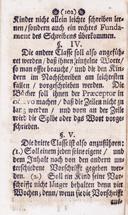 (102)
Kinder nicht allein leichte schreiben ler-
nen / sondern auch ein rechtes Funda-
ment des Schreibens überkommen.
§. IV.
Die andere Classe soll also angefüh-
ret werden / daß ihnen
man offte brauche / und die den Kin-
dern im Nachschreiben am leichtesten
fallen / vorgeschrieben werden. Die
Bücher soll ihnen der Præceptor in
octavo machen / daß sie die Zeilen nicht so
lang machen / und er an der Zeile
wird die Sylbe oder das Wort vorge-
schrieben.
§. V.
Die dritte Classe ist also anzuführen:
(1.) Soll einem jeden seine eigene / und
dem Inhalt nach von den andern
verschiedene Vorschrifft gegeben wer-
den. (2.) Soll ein jeder dieselbe Vor-
schrifft nicht länger behalten denn ein
Wochen / denn wo sie